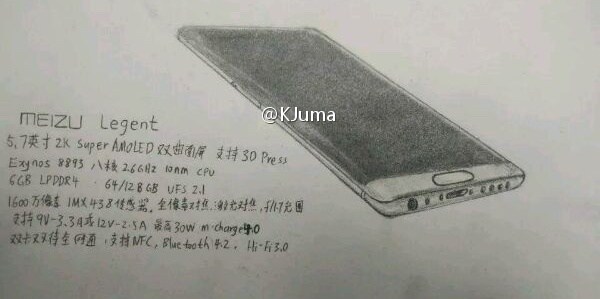 @KJuma
MEIZU Legent
5.7英寸 2K Super AMOLED 双曲面屏 支持3D Press
Exynos 8893 八核 2.6GHz 10nm cpu
6GB LPDDR4 · 64/128GB UFS 2.1
1600万像素 IMX438传感器. 全像素对焦. 激光对焦, f/1.7光圈
支持9V-3.3A或12V-2.5A 最高30W m-charge4.0
双卡双待全网通, 支持NFC, Bluetooth 4.2, Hi-Fi 3.0